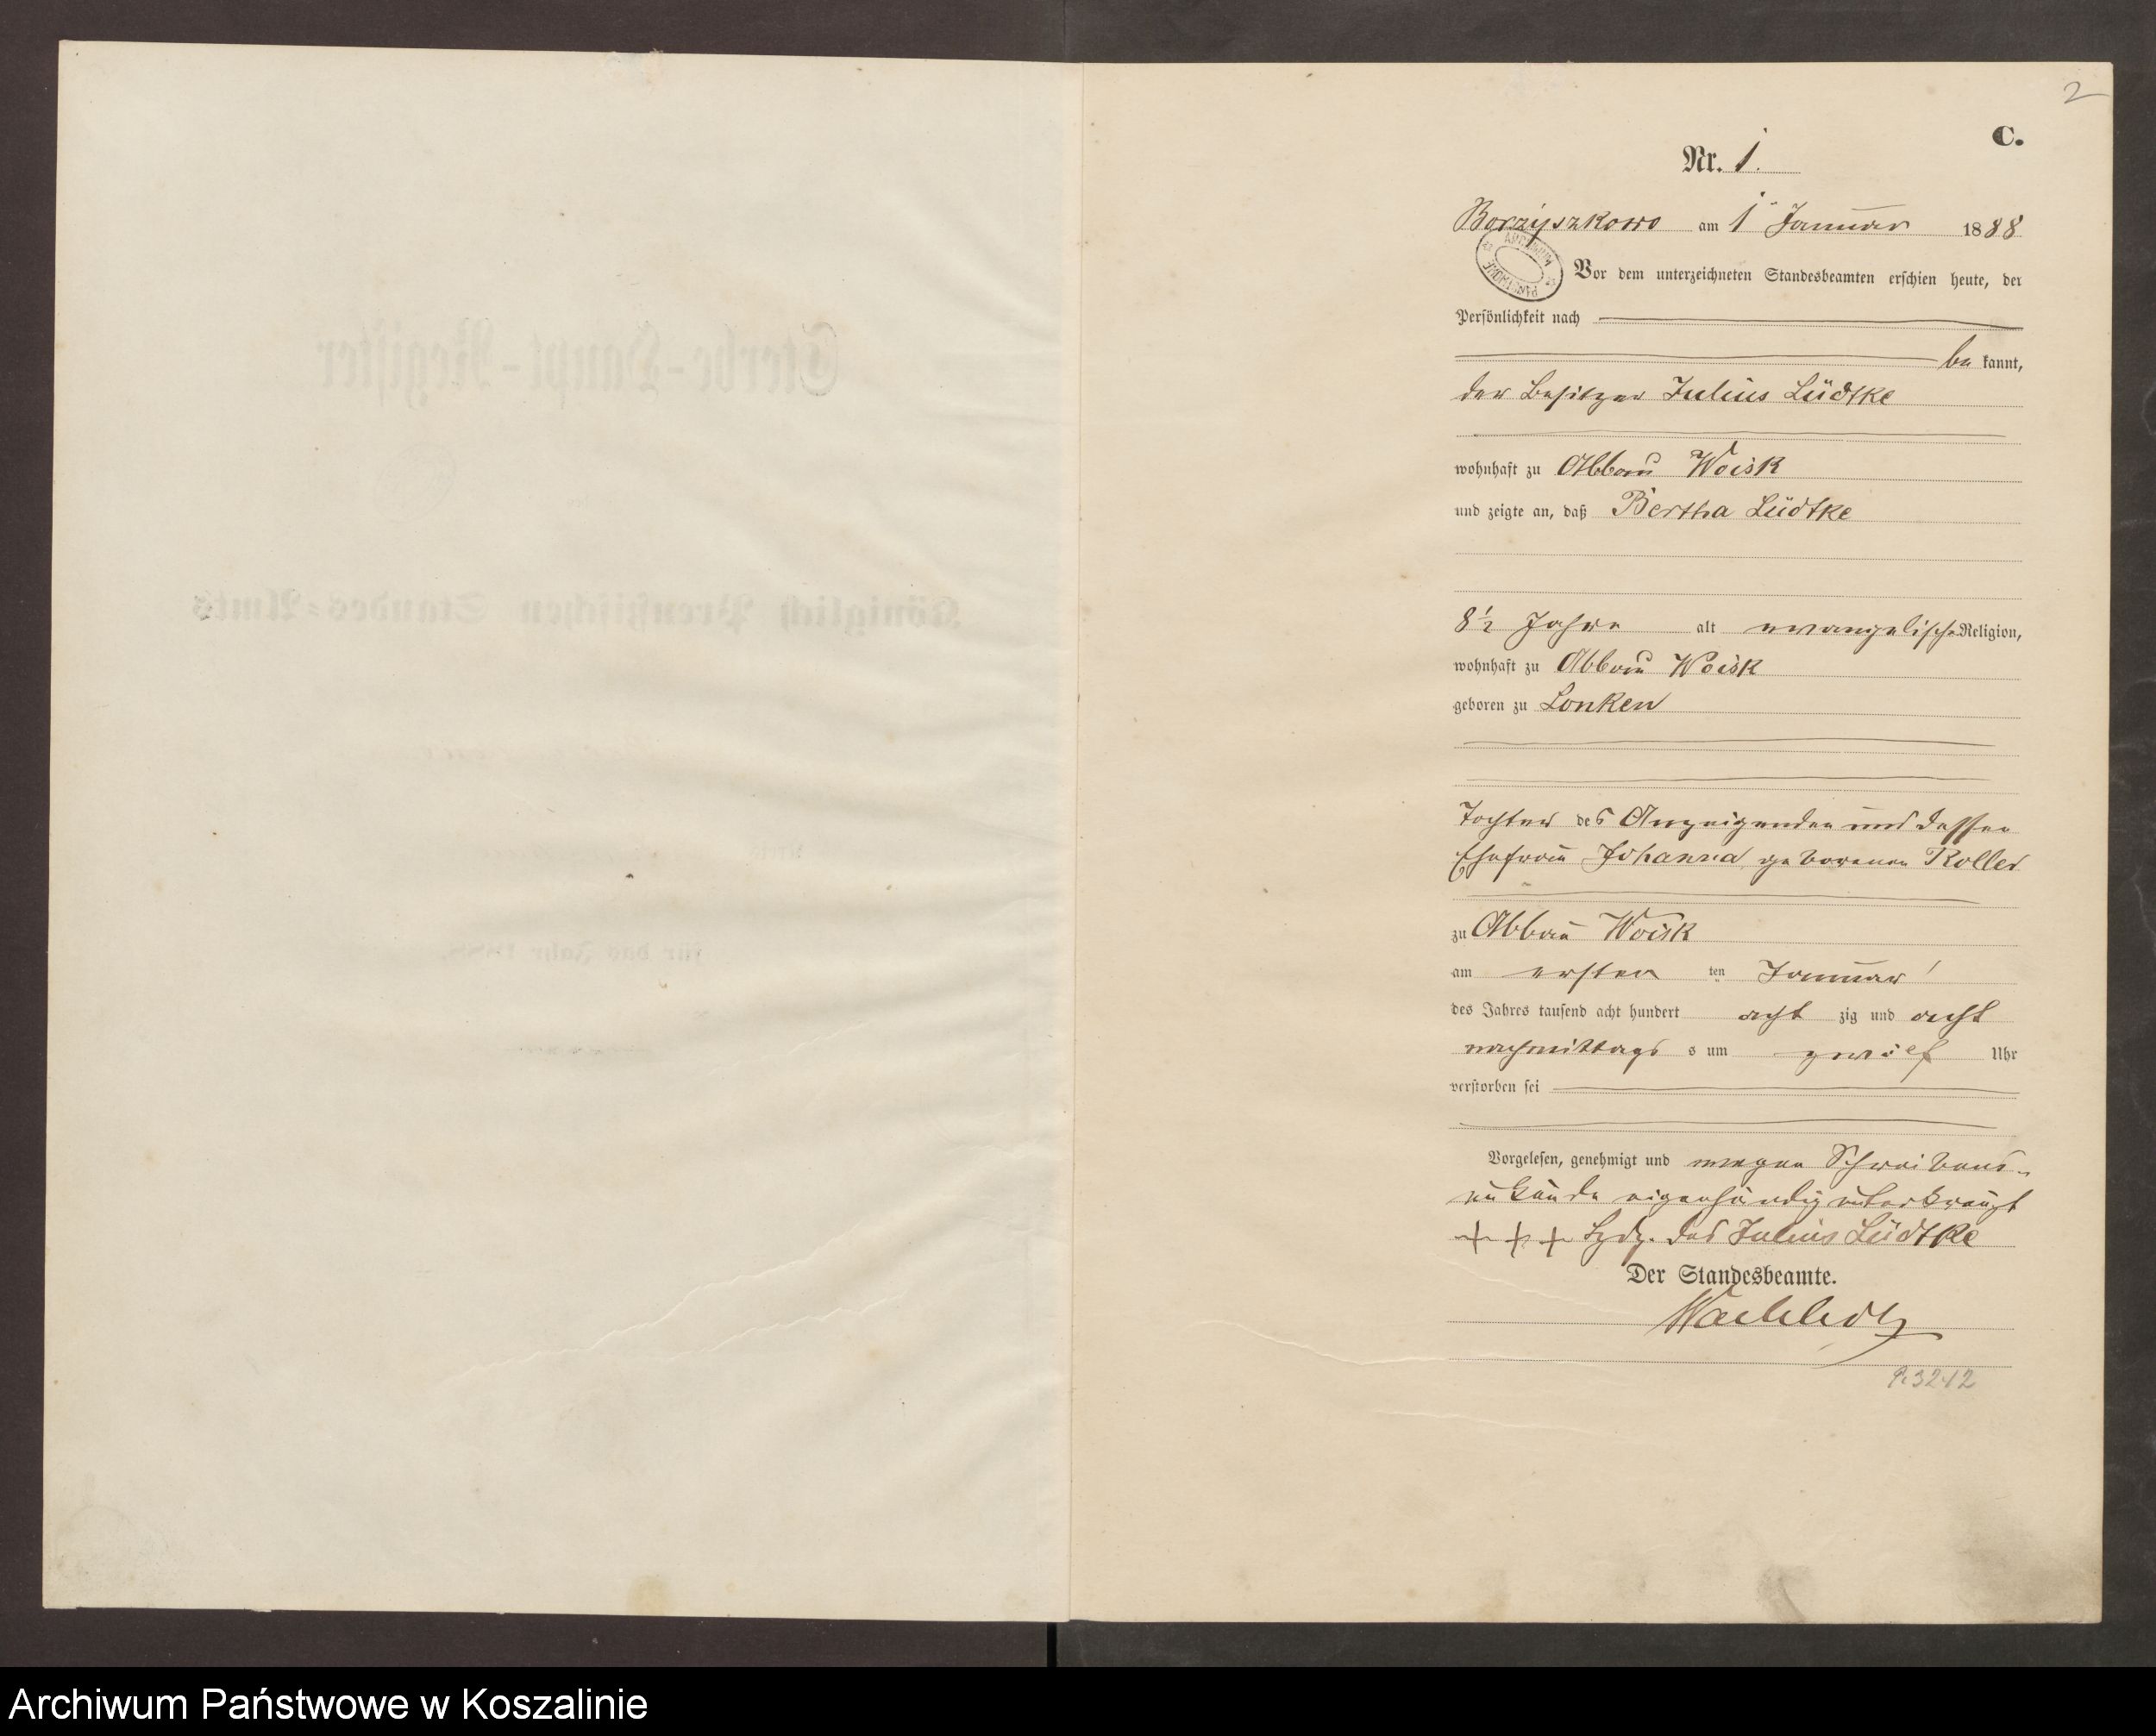 2
C.
Nr. 1.
Borzyszkowo am 1 Januar 1888
Vor dem unterzeichneten Standesbeamten erschien heute, der
Persönlichkeit nach
be kannt,
der Besitzer Julius Lüdtke
wohnhaft zu Abbau Woisk
und zeigte an, daß Bertha Lüdtke
8½ Jahre alt evangelische Religion,
wohnhaft zu Abbau Woisk
geboren zu Lonken
Tochter des Anzeigenden und dessen
Ehefrau Johanna geborenen Roller
zu Abbau Woisk
am ersten ten Januar
des Jahres tausend acht hundert acht zig und acht
nachmittags s um zwölf Uhr
verstorben sei
Vorgelesen, genehmigt und wegen Schreibens-
unkunde eigenhändig unterkreuzt
+ + + Hdz. des Julius Lüdtke
Der Standesbeamte.
Sterbe-Haupt-Register
Königlich Preußischen Standes-Amts
für das Jahr 1888.
Archiwum Państwowe w Koszalinie